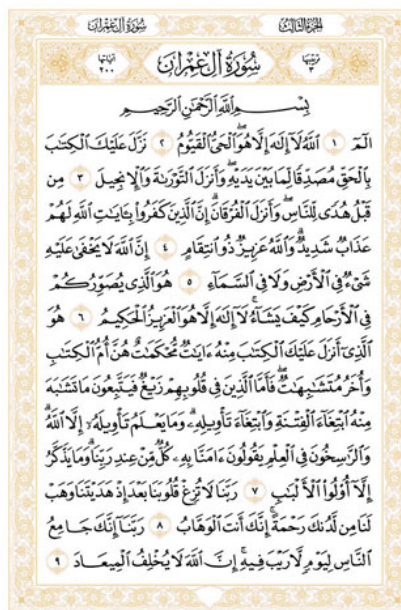 سُورَةُ آلِ عِمْرَان
الجزء الثالث
آياتها ٢٠٠
سُورَةُ آلِ عِمْرَان
ترتيبها ٣
بِسْمِ اللَّهِ الرَّحْمَٰنِ الرَّحِيمِ
الٓمٓ ١ اللَّهُ لَآ إِلَٰهَ إِلَّا هُوَ ۖ الْحَىُّ الْقَيُّومُ ٢ نَزَّلَ عَلَيْكَ الْكِتَٰبَ
بِالْحَقِّ مُصَدِّقًا لِّمَا بَيْنَ يَدَيْهِ ۖ وَأَنزَلَ التَّوْرَىٰةَ وَالْإِنجِيلَ ٣ مِن
قَبْلُ هُدًى لِّلنَّاسِ ۖ وَأَنزَلَ الْفُرْقَانَ ۗ إِنَّ الَّذِينَ كَفَرُوا۟ بِـَٔايَٰتِ اللَّهِ لَهُمْ
عَذَابٌ شَدِيدٌ ۗ وَاللَّهُ عَزِيزٌ ذُو انتِقَامٍ ٤ إِنَّ اللَّهَ لَا يَخْفَىٰ عَلَيْهِ
شَىْءٌ فِى الْأَرْضِ وَلَا فِى السَّمَآءِ ٥ هُوَ الَّذِى يُصَوِّرُكُمْ
فِى الْأَرْحَامِ كَيْفَ يَشَآءُ ۚ لَآ إِلَٰهَ إِلَّا هُوَ الْعَزِيزُ الْحَكِيمُ ٦ هُوَ
الَّذِىٓ أَنزَلَ عَلَيْكَ الْكِتَٰبَ مِنْهُ ءَايَٰتٌ مُّحْكَمَٰتٌ هُنَّ أُمُّ الْكِتَٰبِ
وَأُخَرُ مُتَشَٰبِهَٰتٌ ۖ فَأَمَّا الَّذِينَ فِى قُلُوبِهِمْ زَيْغٌ فَيَتَّبِعُونَ مَا تَشَٰبَهَ
مِنْهُ ابْتِغَآءَ الْفِتْنَةِ وَابْتِغَآءَ تَأْوِيلِهِۦ ۗ وَمَا يَعْلَمُ تَأْوِيلَهُۥٓ إِلَّا اللَّهُ ۗ
وَالرَّٰسِخُونَ فِى الْعِلْمِ يَقُولُونَ ءَامَنَّا بِهِۦ كُلٌّ مِّنْ عِندِ رَبِّنَا ۗ وَمَا يَذَّكَّرُ
إِلَّآ أُو۟لُوا۟ الْأَلْبَٰبِ ٧ رَبَّنَا لَا تُزِغْ قُلُوبَنَا بَعْدَ إِذْ هَدَيْتَنَا وَهَبْ
لَنَا مِن لَّدُنكَ رَحْمَةً ۚ إِنَّكَ أَنتَ الْوَهَّابُ ٨ رَبَّنَآ إِنَّكَ جَامِعُ
النَّاسِ لِيَوْمٍ لَّا رَيْبَ فِيهِ ۚ إِنَّ اللَّهَ لَا يُخْلِفُ الْمِيعَادَ ٩